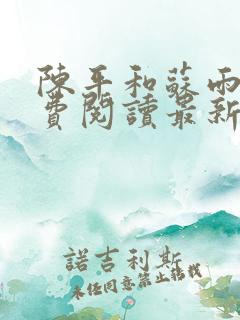 陳平和蘇雨
費閱讀最新
諾吉利斯
未经同意禁止转载